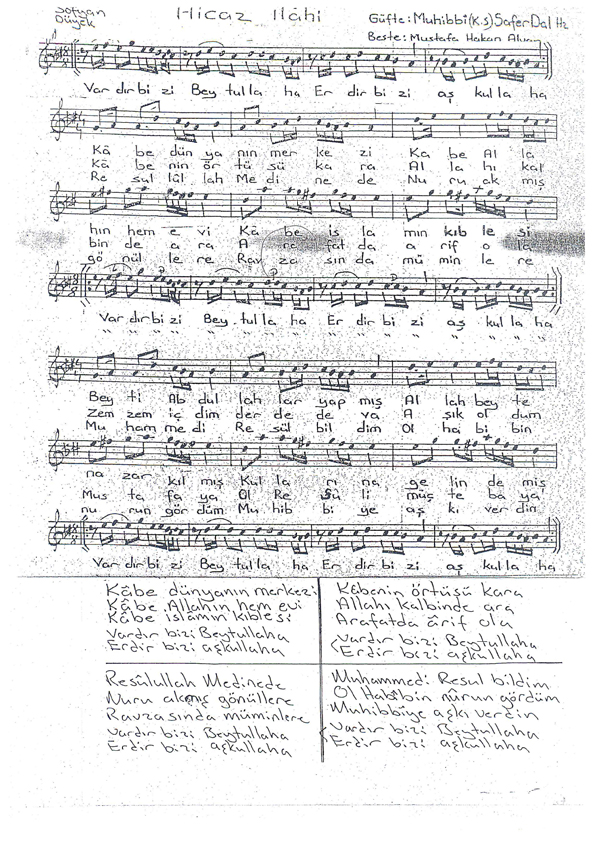 Sofyan
Düyek
Hicaz İlâhi
Güfte: Muhibbî (K.S) Safer Dal Hz
Beste: Mustafa Hakan Alvan
Var dır bi zi Bey tul la ha Er dir bi zi aş kul la ha
Kâ be dün ya nın mer ke zi Ka be Al lâ
Kâ be nin ör tü sü ka ra Al la hı kal
Re sul lül lah Me di ne de Nu ru ak mış
hın hem e vi Kâ be is la mın kıb le si
bin de a ra A ra fat da a rif o la
gö nül le re Rav za sın da mü min le re
Var dır bi zi Bey tul la ha Er dir bi zi aş kul la ha
" " " " " " " " " " " " " "
Bey ti Ab dul lah lar yap mış Al lah bey te
Zem zem iç dim der de de va A şık ol dum
Mu ham me di Re sül bil dim Ol ha bi bin
na zar kıl mış Kul la rı na ge lin de miş
Mus ta fa ya Ol Re sü li müç te ba ya
nu run gör düm Mu hib bi ye aş kı ver din
Var dır bi zi Bey tul la ha Er dir bi zi aş kul la ha
Kâbe dünyanın merkezi
Kâbe Allahın hem evi
Kâbe İslâmın kıblesi
Vardır bizi Beytullaha
Erdir bizi aşkullaha
Kâbenin örtüsü kara
Allahı kalbinde ara
Arafatda ârif ola
Vardır bizi Beytullaha
Erdir bizi aşkullaha
Resûlullah Medinede
Nuru akmış gönüllere
Ravzasında müminlere
Vardır bizi Beytullaha
Erdir bizi aşkullaha
Muhammedi Resul bildim
Ol Habîbin nûrun gördüm
Muhibbîye aşkı verdin
Vardır bizi Beytullaha
Erdir bizi aşkullaha